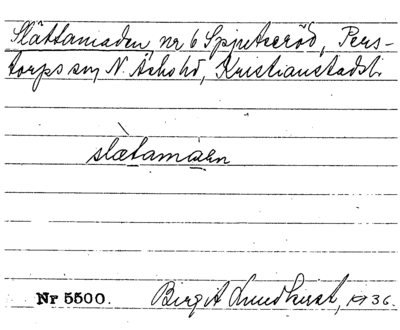 Slättamaden nr 6 Spjutseröd, Pers-
torps sn, N. Åsbo hd, Kristianstads l.
slætamàen
Nr 5500. Birgit Lundkvist, 1936.